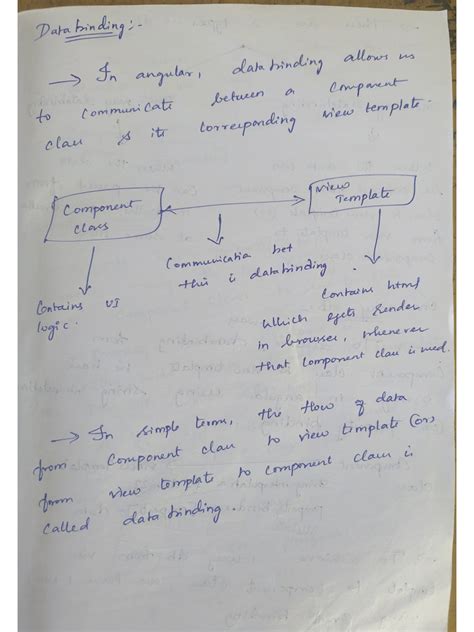 Databinding:-
→ In angular, databinding allows us
to communicate between a component
class & its corresponding view template.
Component
class
View
Template
Communication bet
this is databinding
Contains UI
logic.
Contains html
which gets render
in browser, whenever
that component class is used.
→ In simple terms, the flow of data
from component class to view template (or)
from view template to component class is
called databinding.